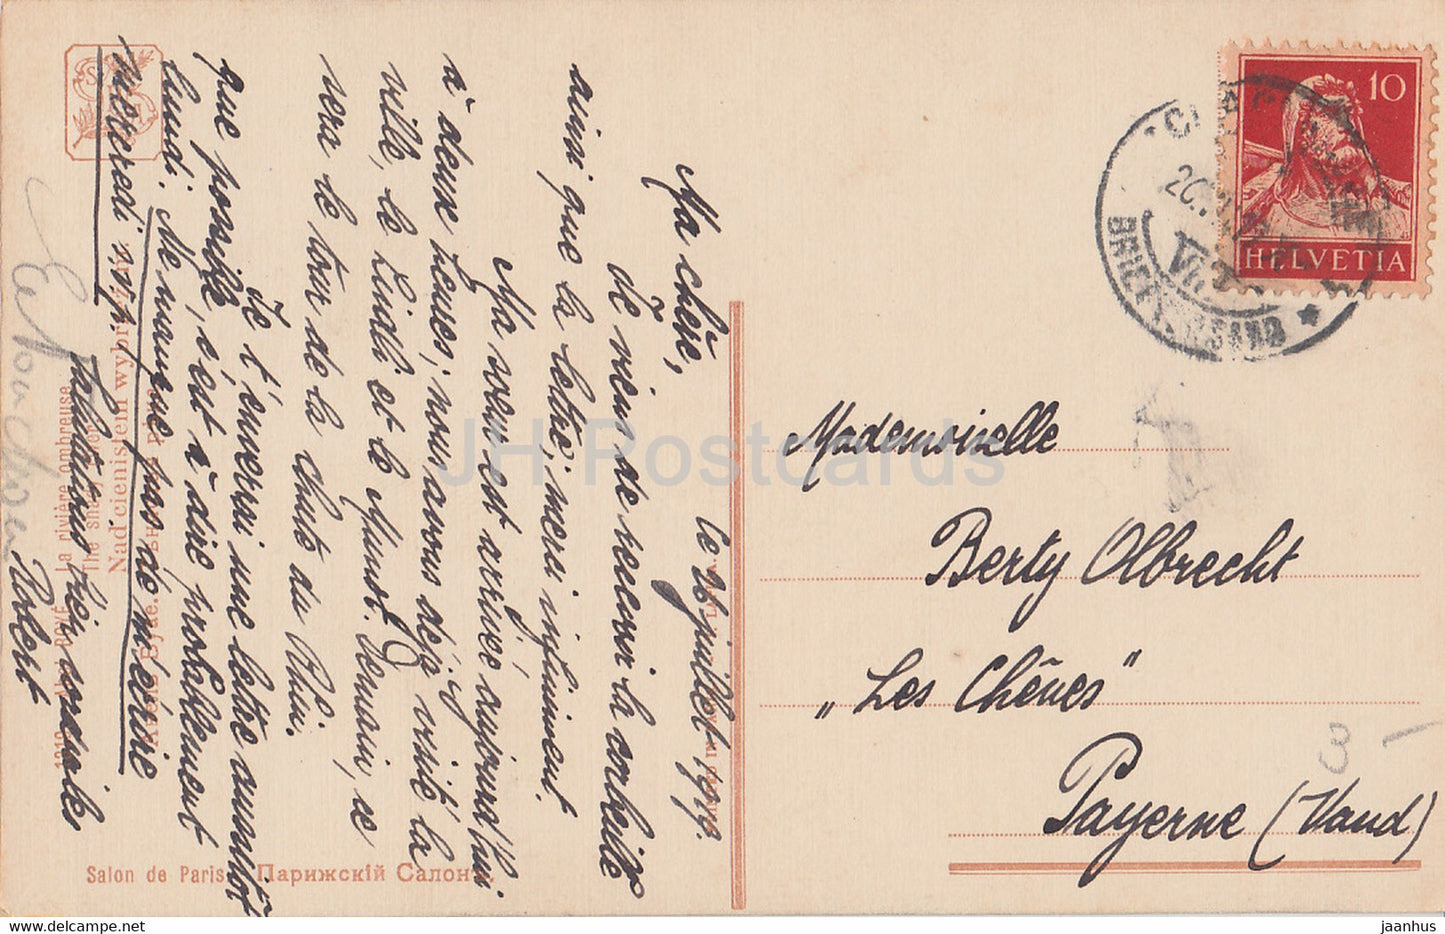 Ma chère, le 26 juillet 1919.
Je viens de recevoir la corbeille
ainsi que la lettre; merci infiniment.
Ma sœur est arrivée aujourd'hui
à deux heures; nous avons déjà visité la
ville, le Lindli et le Munot. Demain, ce
sera le tour de la chute du Rhin.
Je t'enverrai une lettre aussitôt
que possible, c'est à dire probablement
lundi. Ne manque pas de m'écrire
mercredi s.v.p.
Salutations très cordiales
Robert
Mademoiselle
Berty Olbrecht
„Les Chênes"
Payerne (Vaud)
HELVETIA
10
BRIEFVERSAND
La rivière ombreuse
Nad cienistem wybrzeżem
Salon de Paris. Парижскій Салонъ.
3 –
JH Postcards
www.delcampe.net
jaanhus